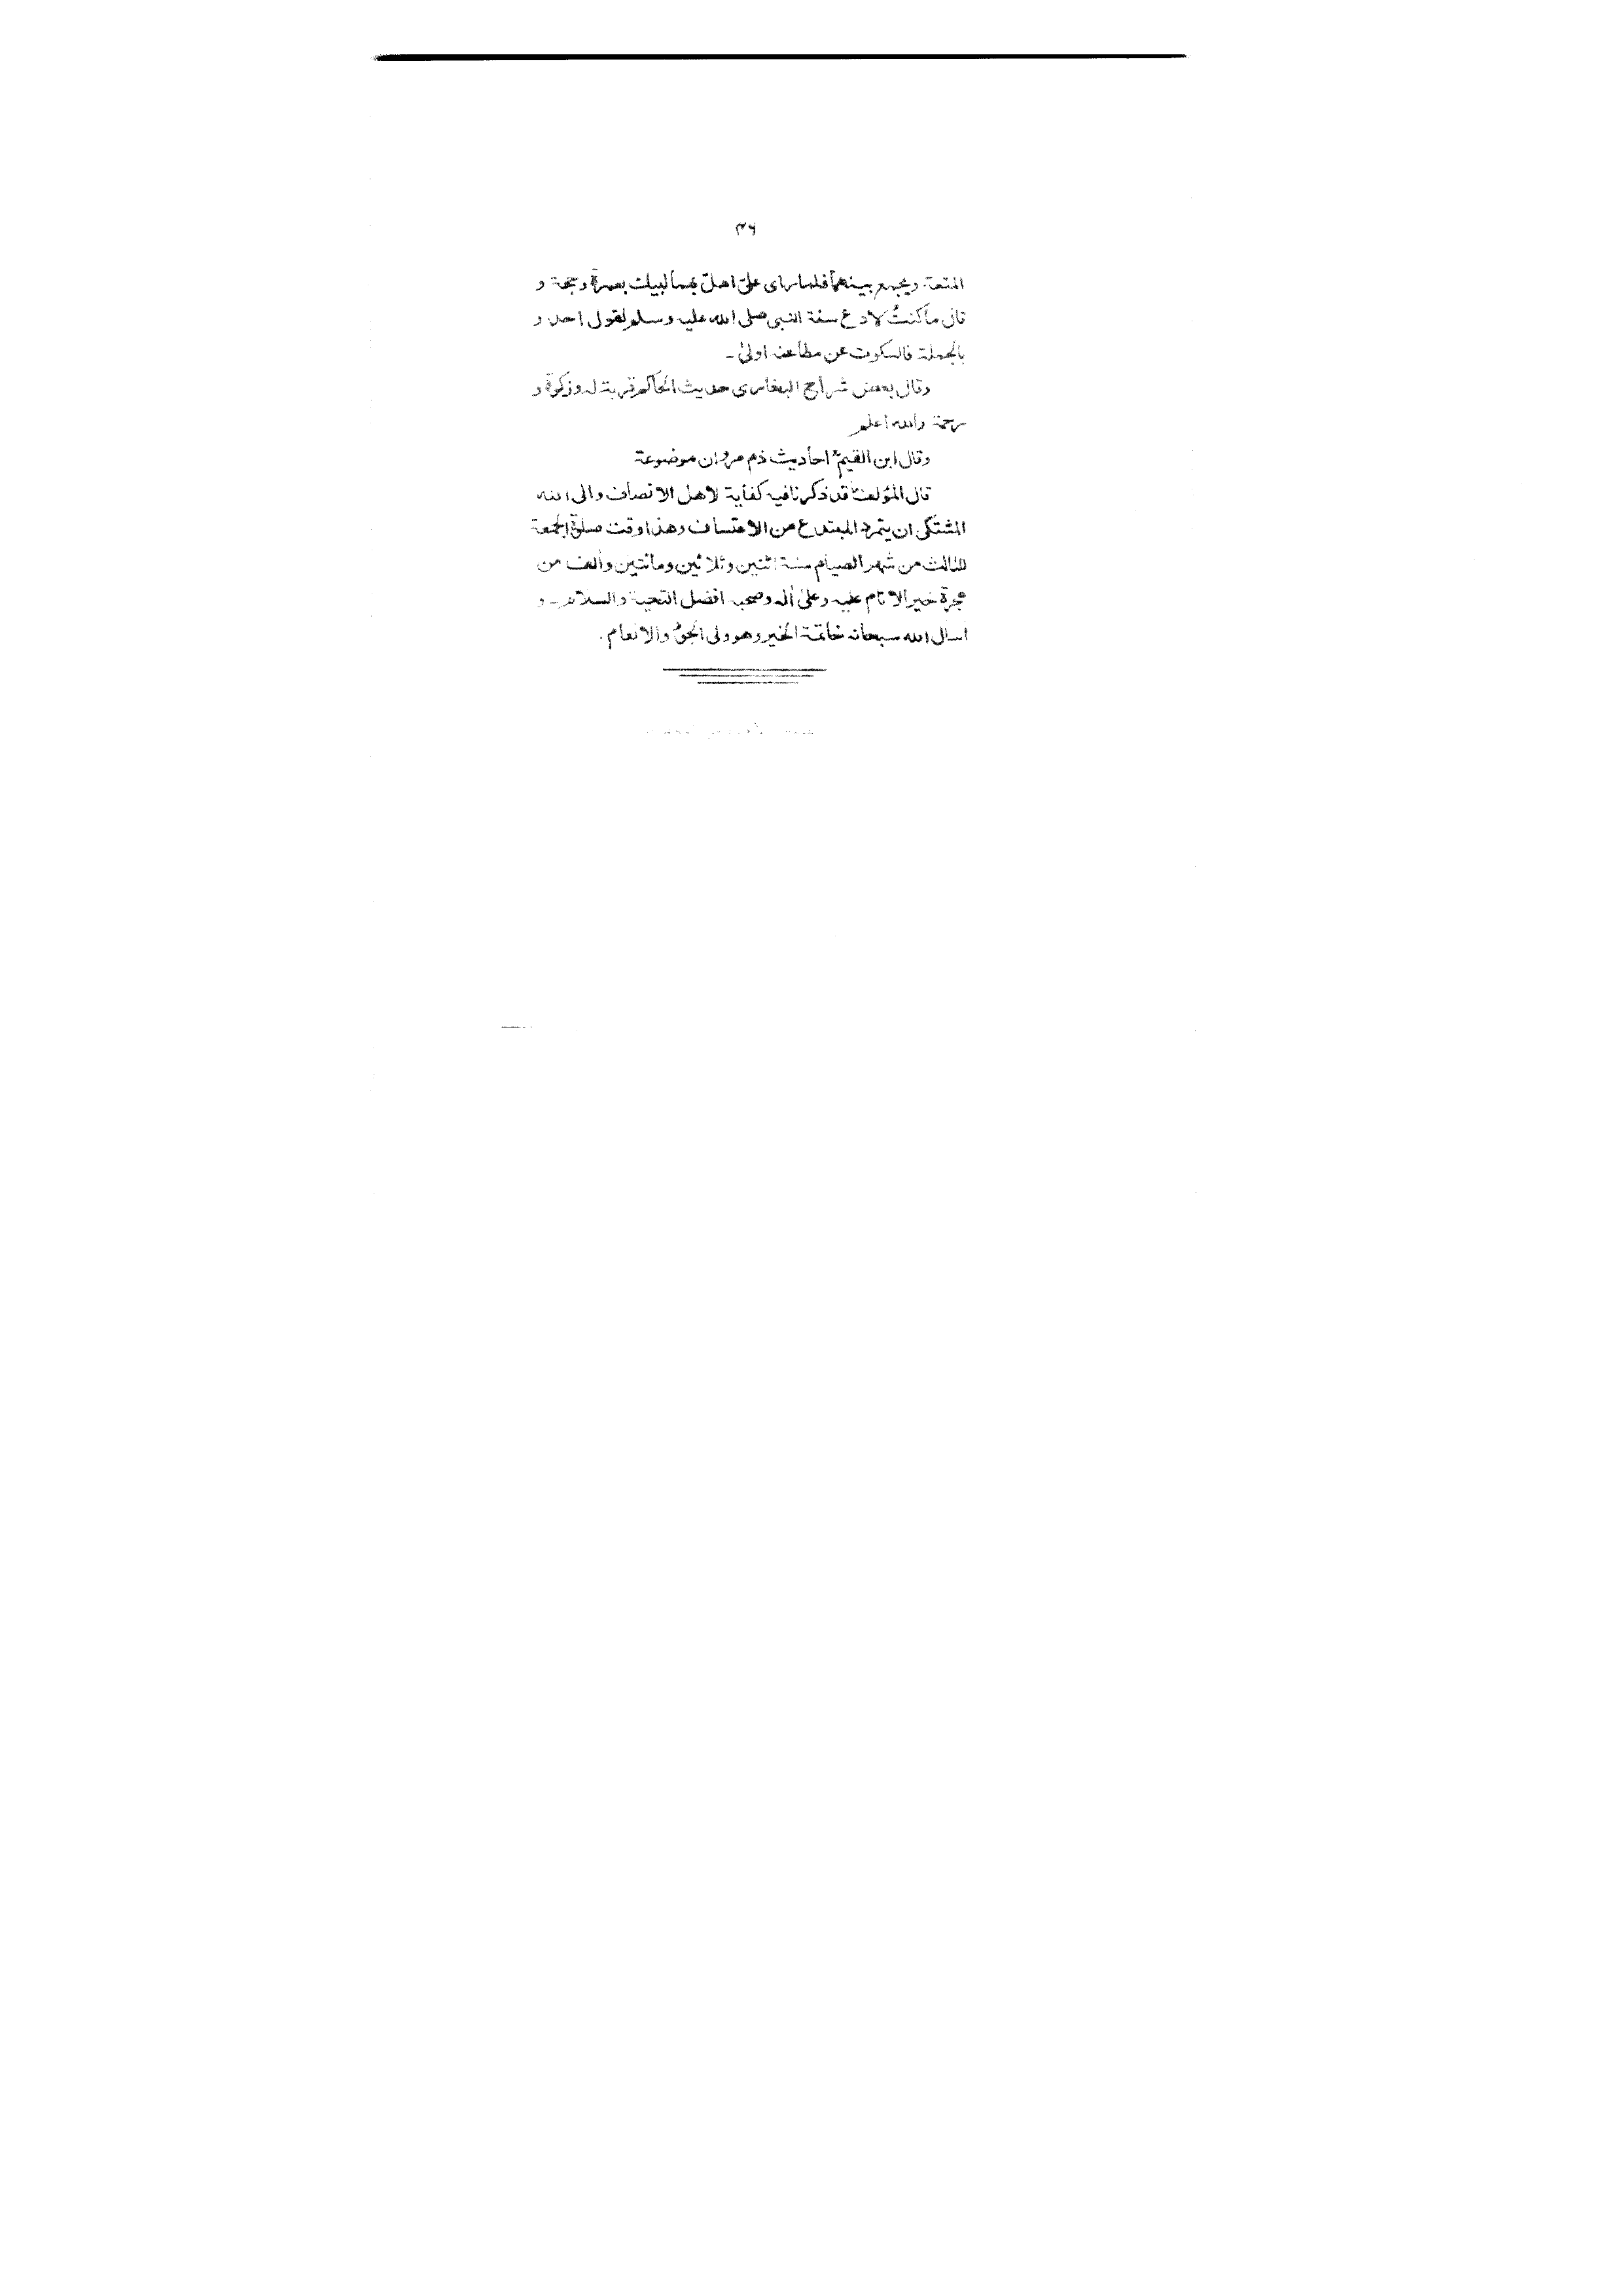 ٣٦
المتعة ويجمع بينهما فلما راى علىّ اهلّ بهما لبيك بعمرة وحجة و
قال ما كنتُ لادع سنة النبى صلى الله عليه وسلم لقول احد و
بالجملة فالسكوت عن مطاعنه اولىٰ ـ
وقال بعض شراح البخارى حديث الحاكم قربة له وزكوة و
رحمة والله اعلم
وقال ابن القيم احاديث ذم مروان موضوعة
قال المؤلف قد ذكرنا فيه كفاية لاهل الانصاف والى الله
المشتكى ان يتمرد المبتدع من الاعتساف وهذا وقت صلوة الجمعة
الثالث من شهر الصيام سنة اثنين وثلاثين ومائتين والف من
هجرة خير الانام عليه وعلى أله وصحبه افضل التحية والسلام ـ و
اسال الله سبحانه خاتمة الخير وهو ولى الحق والانعام.